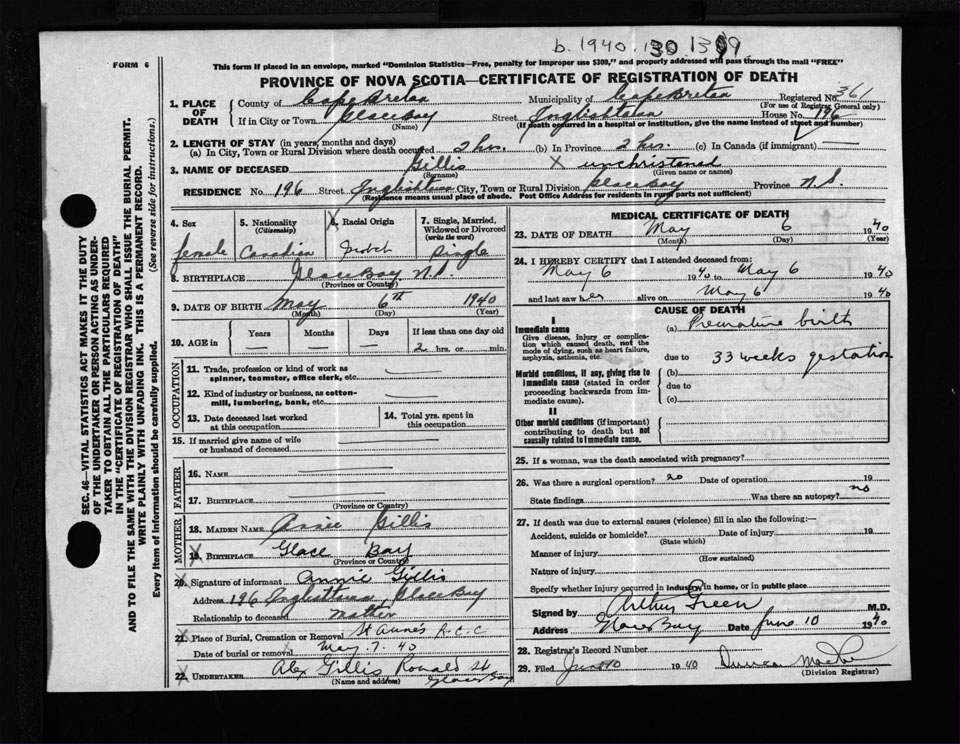 b. 1940. 130 1319
FORM 6
This form if placed in an envelope, marked "Dominion Statistics—Free, penalty for improper use $300," and properly addressed will pass through the mail "FREE"
PROVINCE OF NOVA SCOTIA—CERTIFICATE OF REGISTRATION OF DEATH
1. PLACE OF DEATH County of Cape Breton Municipality of Cape Breton Registered No. 361
(For use of Registrar General only)
If in City or Town Glace Bay Street Inglishtown House No. 196
(Name) (If death occurred in a hospital or institution, give the name instead of street and number)
2. LENGTH OF STAY (in years, months and days)
(a) In City, Town or Rural Division where death occurred 2 hrs. (b) In Province 2 hrs. (c) In Canada (if immigrant)
3. NAME OF DECEASED Gillis X unchristened
(Surname) (Given name or names)
RESIDENCE No. 196 Street Inglishtown City, Town or Rural Division Glace Bay Province N.S.
(Residence means usual place of abode. Post Office Address for residents in rural parts not sufficient)
4. Sex 5. Nationality (Citizenship) 6. Racial Origin 7. Single, Married, Widowed or Divorced (write the word)
female Canadian Scotch Single
8. BIRTHPLACE Glace Bay N.S.
(Province or Country)
9. DATE OF BIRTH May 6th 1940
(Month) (Day) (Year)
10. AGE in Years Months Days If less than one day old
2 hrs. or min.
OCCUPATION
11. Trade, profession or kind of work as spinner, teamster, office clerk, etc.
12. Kind of industry or business, as cotton-mill, lumbering, bank, etc.
13. Date deceased last worked at this occupation 14. Total yrs. spent in this occupation
15. If married give name of wife or husband of deceased
FATHER
16. NAME
17. BIRTHPLACE
(Province or Country)
MOTHER
18. MAIDEN NAME Annie Gillis
19. BIRTHPLACE Glace Bay
(Province or Country)
20. Signature of informant Annie Gillis
Address 196 Inglishtown Glace Bay
Relationship to deceased mother
21. Place of Burial, Cremation or Removal St Anne's R.C.C
Date of burial or removal May. 7. 40
22. UNDERTAKER Alex Gillis Ronald St
(Name and address) Glace Bay
MEDICAL CERTIFICATE OF DEATH
23. DATE OF DEATH May 6 1940
(Month) (Day) (Year)
24. I HEREBY CERTIFY that I attended deceased from:
May 6 1940 to May 6 1940
and last saw her alive on May 6 1940
CAUSE OF DEATH
I
Immediate cause
Give disease, injury or complication which caused death, not the mode of dying, such as heart failure, asphyxia, asthenia, etc.
(a) Premature birth
due to 33 weeks gestation
Morbid conditions, if any, giving rise to immediate cause (stated in order proceeding backwards from immediate cause).
(b)
due to
(c)
II
Other morbid conditions (if important) contributing to death but not causally related to immediate cause.
25. If a woman, was the death associated with pregnancy?
26. Was there a surgical operation? no Date of operation 19
State findings Was there an autopsy? no
27. If death was due to external causes (violence) fill in also the following:—
Accident, suicide or homicide? Date of injury 19
(State which)
Manner of injury
(How sustained)
Nature of injury
Specify whether injury occurred in industry, in home, or in public place
Signed by Arthur Green M.D.
Address Glace Bay Date June 10 1940
28. Registrar's Record Number
29. Filed June 10 1940 Duncan
(Division Registrar)
SEC. 46—VITAL STATISTICS ACT MAKES IT THE DUTY
OF THE UNDERTAKER OR PERSON ACTING AS UNDER-
TAKER TO OBTAIN ALL THE PARTICULARS REQUIRED
IN THE "CERTIFICATE OF REGISTRATION OF DEATH"
AND TO FILE THE SAME WITH THE DIVISION REGISTRAR WHO SHALL ISSUE THE BURIAL PERMIT.
WRITE PLAINLY WITH UNFADING INK. THIS IS A PERMANENT RECORD.
Every item of information should be carefully supplied. (See reverse side for instructions.)